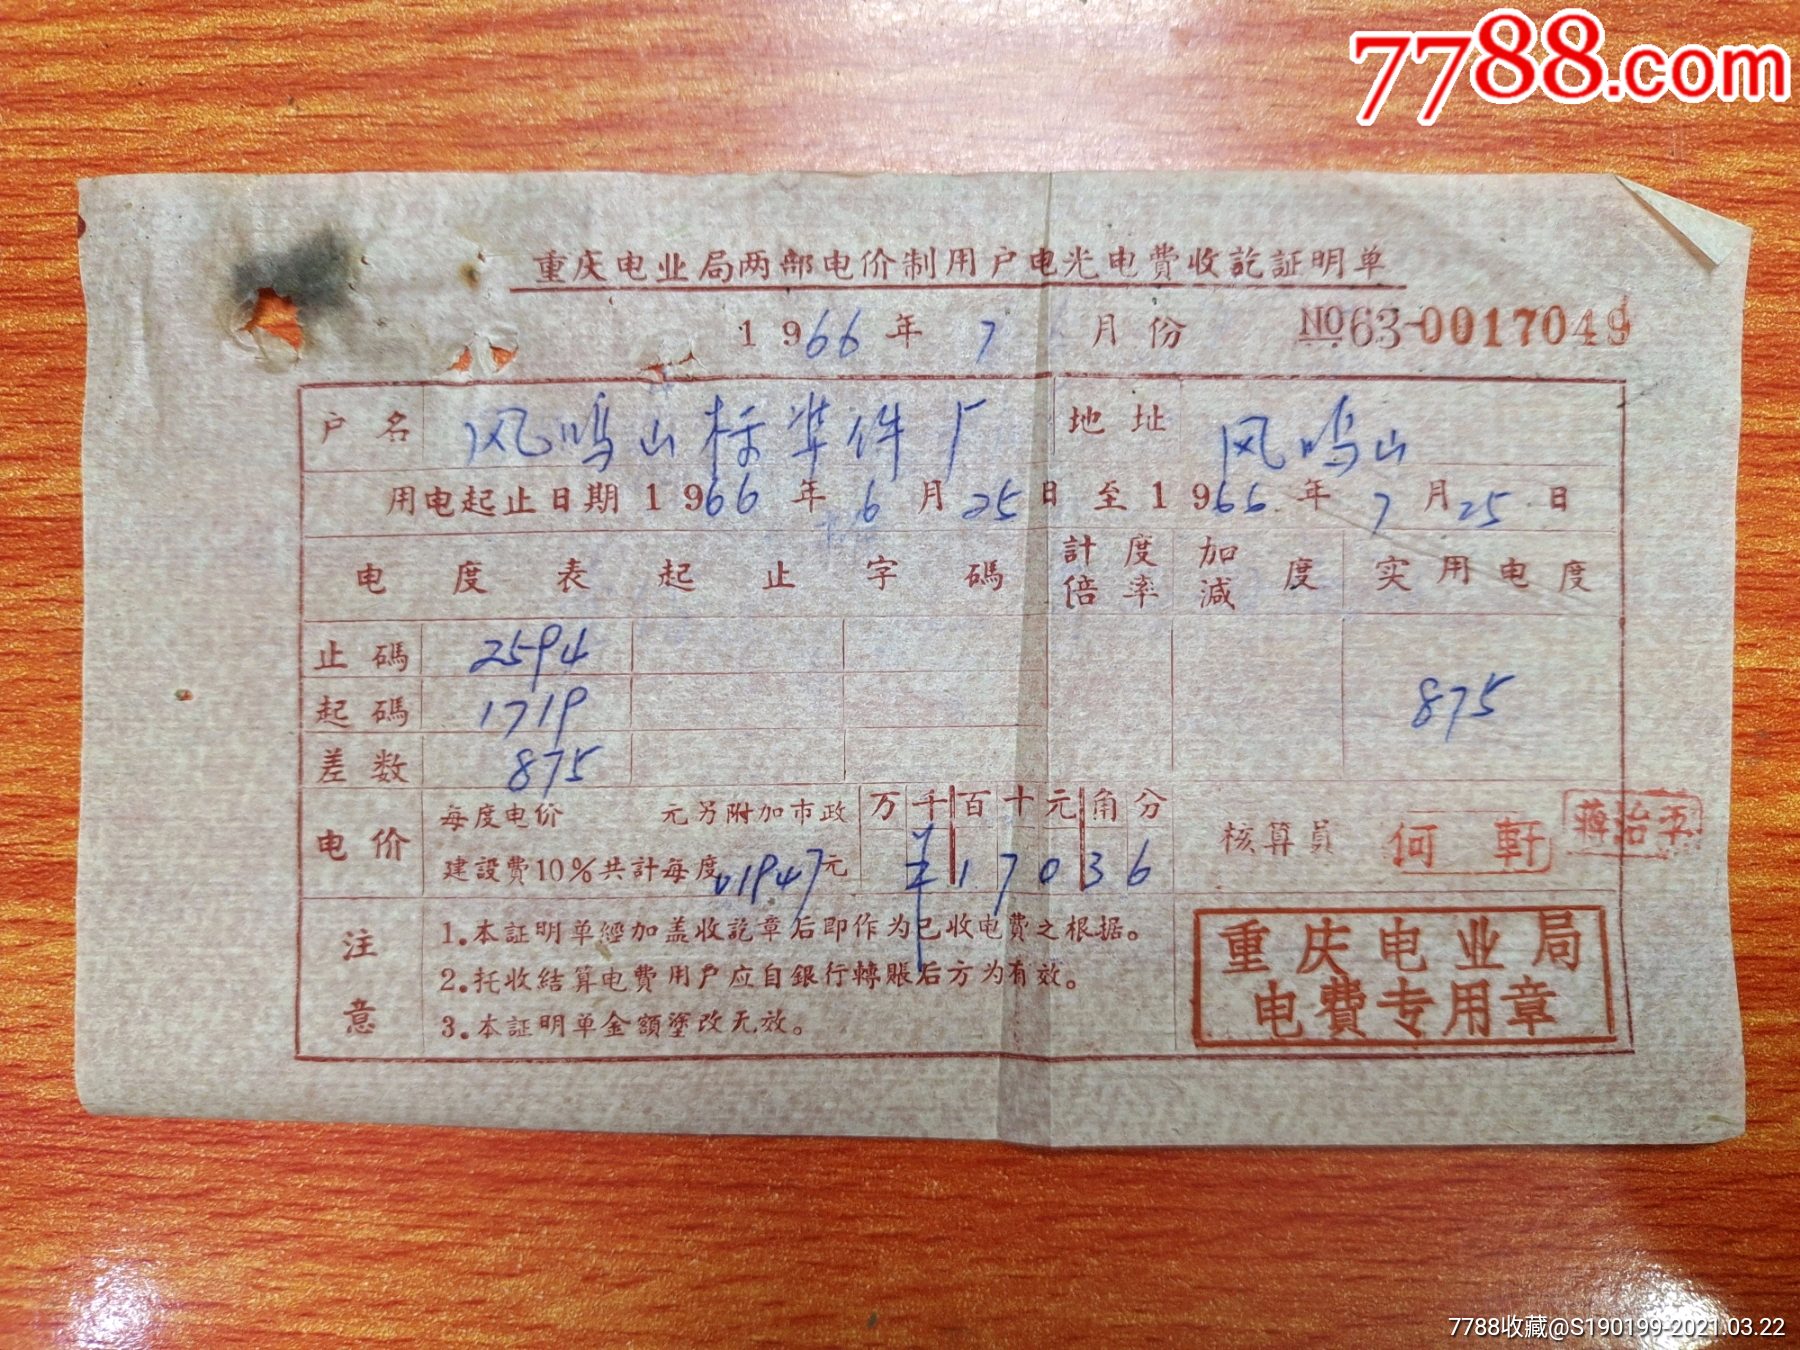 7788.com
重庆电业局两部电价制用户电光电費收訖証明单
1966年7月份
NO63-0017049
户名 凤鸣山标准件厂 地址 凤鸣山
用电起止日期1966年6月25日至1966年7月25日
电度表起止字碼 計度倍率 加减度 实用电度
止碼 2594
起碼 1719
差数 875
875
电价 每度电价 元另附加市政
建設費10%共計每度01947元
万千百十元角分
¥17036
核算員 何軒
注意
1.本証明单經加盖收訖章后即作为已收电費之根据。
2.托收結算电費用户应自銀行轉賬后方为有效。
3.本証明单金額塗改无效。
重庆电业局
电費专用章
7788收藏@S190199-2021.03.22